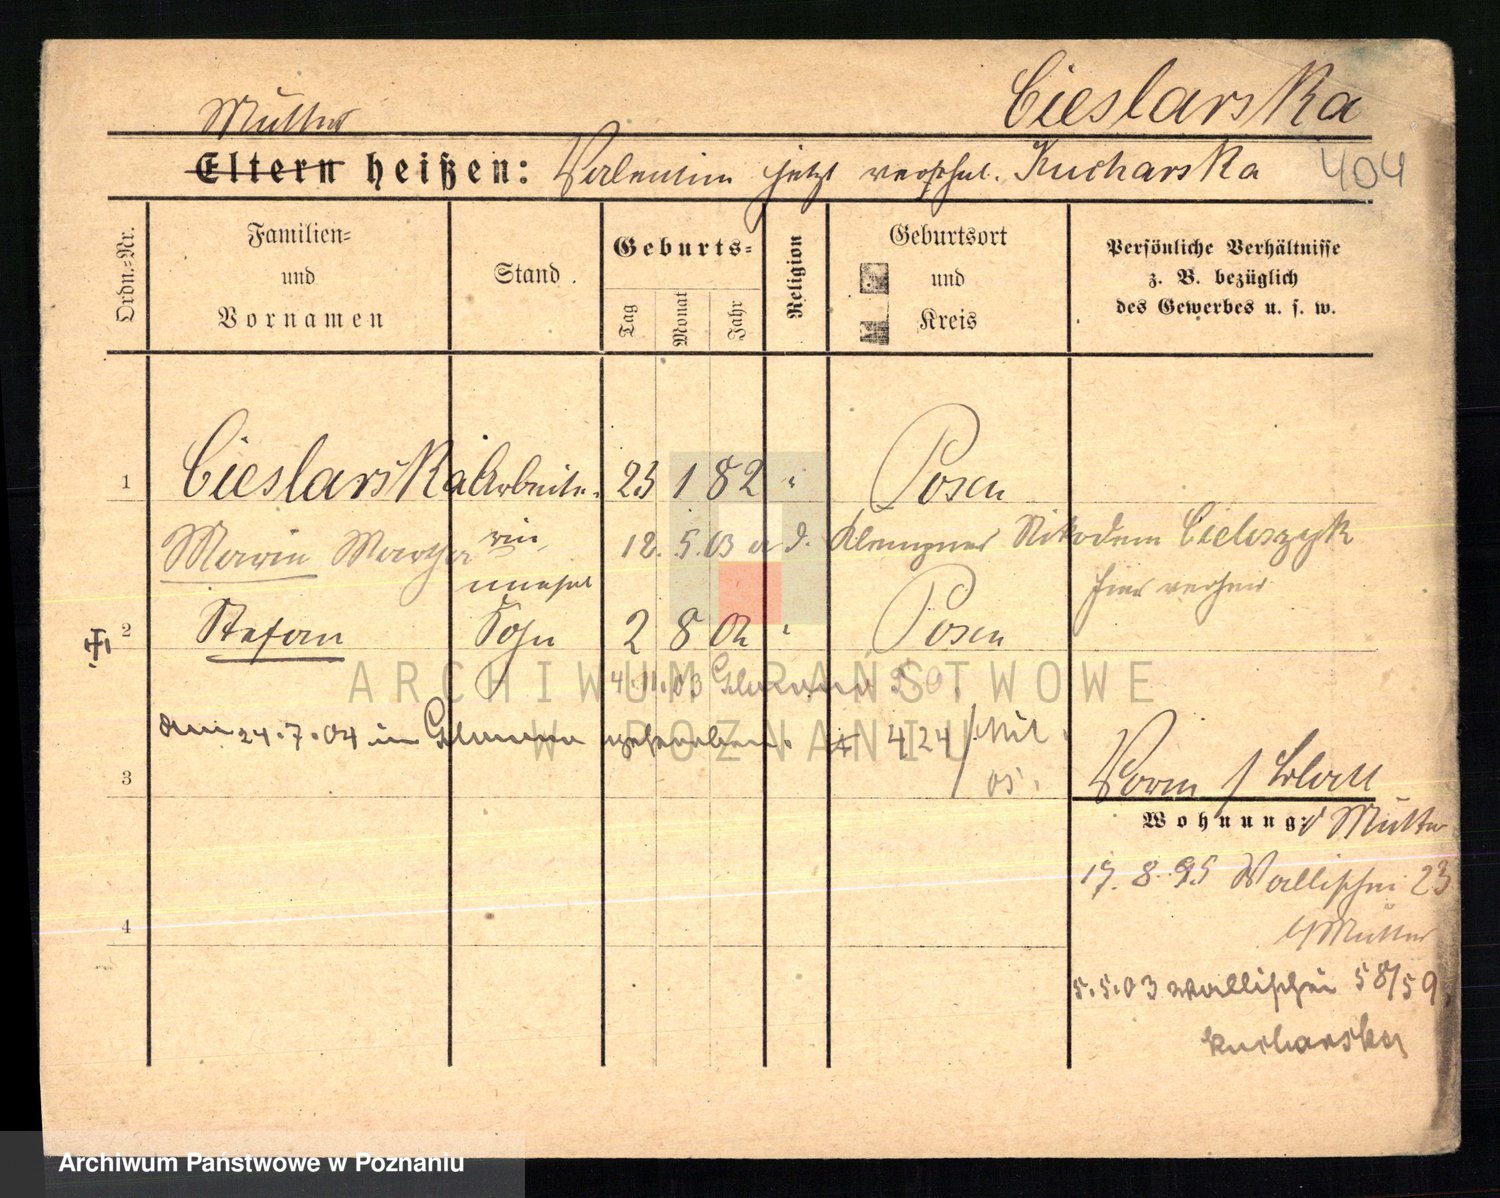 Cieslarska
Mutter
Eltern heißen: Valentin jetzt verehel. Kucharska 404
Ordn.=Nr.
Familien=
und
Vornamen
Stand
Geburts=
Tag
Monat
Jahr
Religion
Geburtsort
und
Kreis
Persönliche Verhältnisse
z. B. bezüglich
des Gewerbes u. s. w.
1 Cieslarska Arbeite- 23 1 82 " Posen
Marie Martha rin 12. 5. 03 a d. Klempner Nikodem Cieluszyk
unehel hier verheir
2 Stefan Sohn 2 8 02 " Posen
4.11.03
am 24.7.04 in Glowno gestorben. 424/Mil
3 05.
Vorm / Blatt
Wohnung: d Mutter
17. 8. 95 Wallischei 23
b/Mutter
4
5.5.03 Wallischei 58/59.
Kucharska
ARCHIWUM PAŃSTWOWE
W POZNANIU
Archiwum Państwowe w Poznaniu